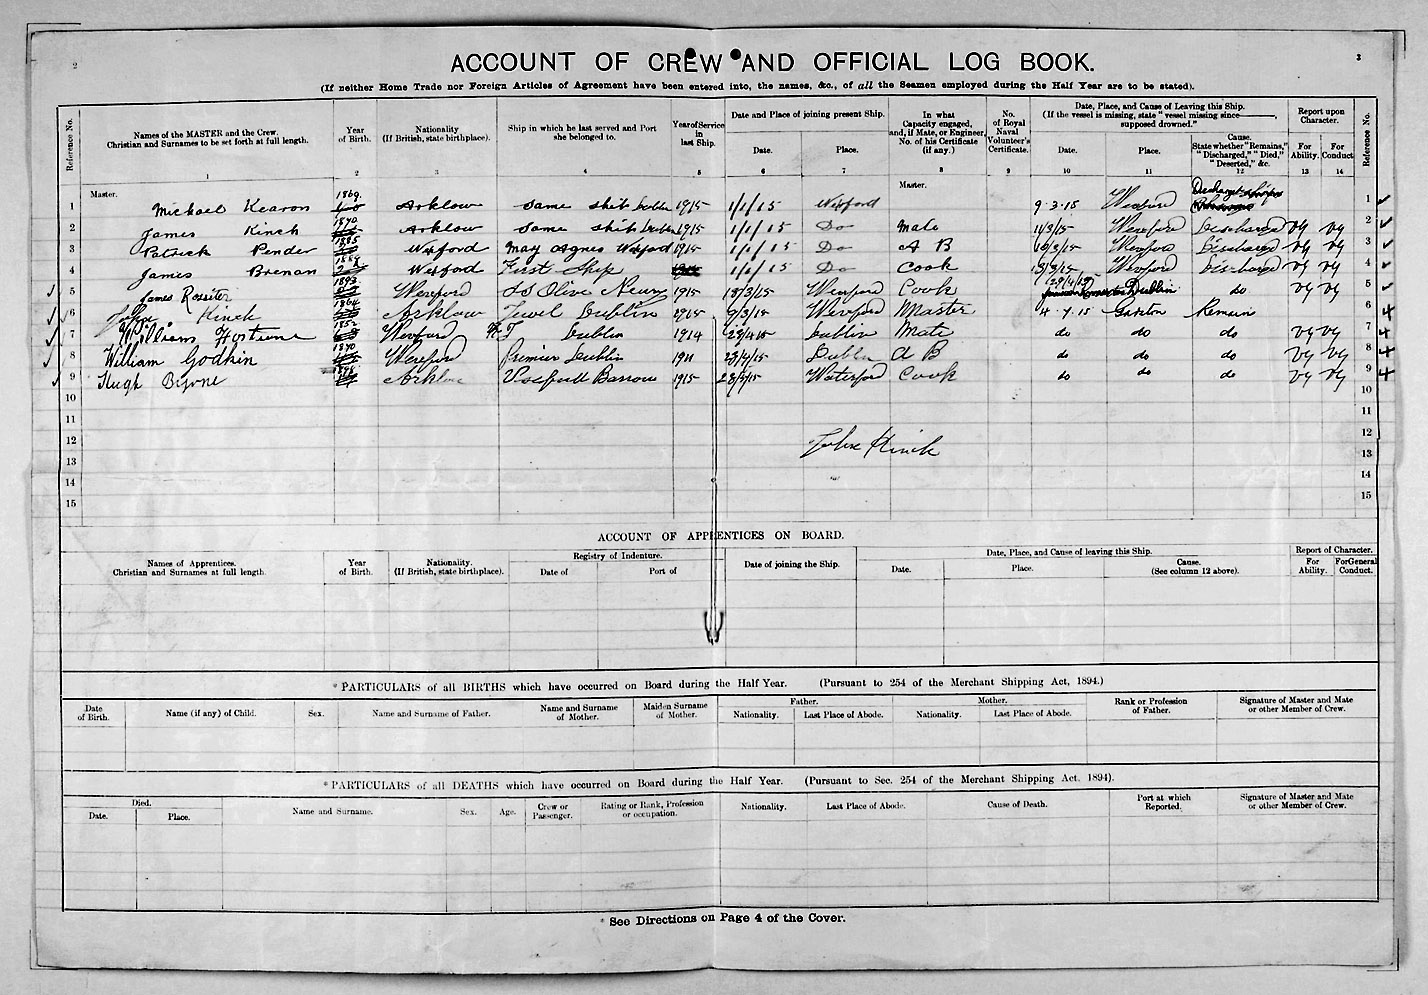 2
3
ACCOUNT OF CREW AND OFFICIAL LOG BOOK.
(If neither Home Trade nor Foreign Articles of Agreement have been entered into, the names, &c., of all the Seamen employed during the Half Year are to be stated).
Reference No. Names of the MASTER and the Crew. Christian and Surnames to be set forth at full length. Year of Birth. Nationality (If British, state birthplace). Ship in which he last served and Port she belonged to. Year of Service in last Ship. Date and Place of joining present Ship. Date. Place. In what Capacity engaged, and, if Mate, or Engineer, No. of his Certificate (if any.) No. of Royal Naval Volunteer's Certificate. Date, Place, and Cause of Leaving this Ship. (If the vessel is missing, state "vessel missing since———, supposed drowned." Date. Place. Cause. State whether "Remains," "Discharged," "Died," "Deserted," &c. Report upon Character. For Ability. For Conduct Reference No.
1 2 3 4 5 6 7 8 9 10 11 12 13 14
Master. Master.
1 Michael Kearon 1869 Arklow same ship Dublin 1915 1/1/15 Wexford 9.3.15 Wexford 1
2 James Kinch 1870 Arklow same ship Dublin 1915 1/1/15 Do Mate 11/3/15 Wexford Discharged VG VG 2
3 Patrick Pender 1885 Wexford May Agnes Wexford 1915 1/1/15 Do A B Wexford Discharged VG VG 3
4 James Brenan Wexford First Ship 1/1/15 Do Cook 13/3/15 Wexford Discharged VG VG 4
5 James Rossiter 1893 Wexford SS Olive Newry 1915 13/3/15 Wexford Cook 29/4/15 Dublin do VG VG 5
6 John Kinch 1864 Arklow Jewel Dublin 1915 9/3/15 Wexford Master 4.7.15 Garston Remain 6
7 Williams 1852 Wexford Dublin 1914 29/4/15 Dublin Mate do do do VG VG 7
8 William Godkin 1870 Wexford Premier Dublin 1911 29/4/15 Dublin A B do do do VG VG 8
9 Hugh Byrne 1898 Arklow Barrow 1915 Waterford Cook do do do VG VG 9
10 10
11 11
12 12
John Kinch
13 13
14 14
15 15
ACCOUNT OF APPRENTICES ON BOARD.
Names of Apprentices. Christian and Surnames at full length. Year of Birth. Nationality. (If British, state birthplace). Registry of Indenture. Date of Port of Date of joining the Ship. Date, Place, and Cause of leaving this Ship. Date. Place. Cause. (See column 12 above). Report of Character. For Ability. For General Conduct.
* PARTICULARS of all BIRTHS which have occurred on Board during the Half Year. (Pursuant to 254 of the Merchant Shipping Act, 1894.)
Date of Birth. Name (if any) of Child. Sex. Name and Surname of Father. Name and Surname of Mother. Maiden Surname of Mother. Father. Nationality. Last Place of Abode. Mother. Nationality. Last Place of Abode. Rank or Profession of Father. Signature of Master and Mate or other Member of Crew.
* PARTICULARS of all DEATHS which have occurred on Board during the Half Year. (Pursuant to Sec. 254 of the Merchant Shipping Act. 1894).
Died. Date. Place. Name and Surname. Sex. Age. Crew or Passenger. Rating or Rank, Profession or occupation. Nationality. Last Place of Abode. Cause of Death. Port at which Reported. Signature of Master and Mate or other Member of Crew.
* See Directions on Page 4 of the Cover.